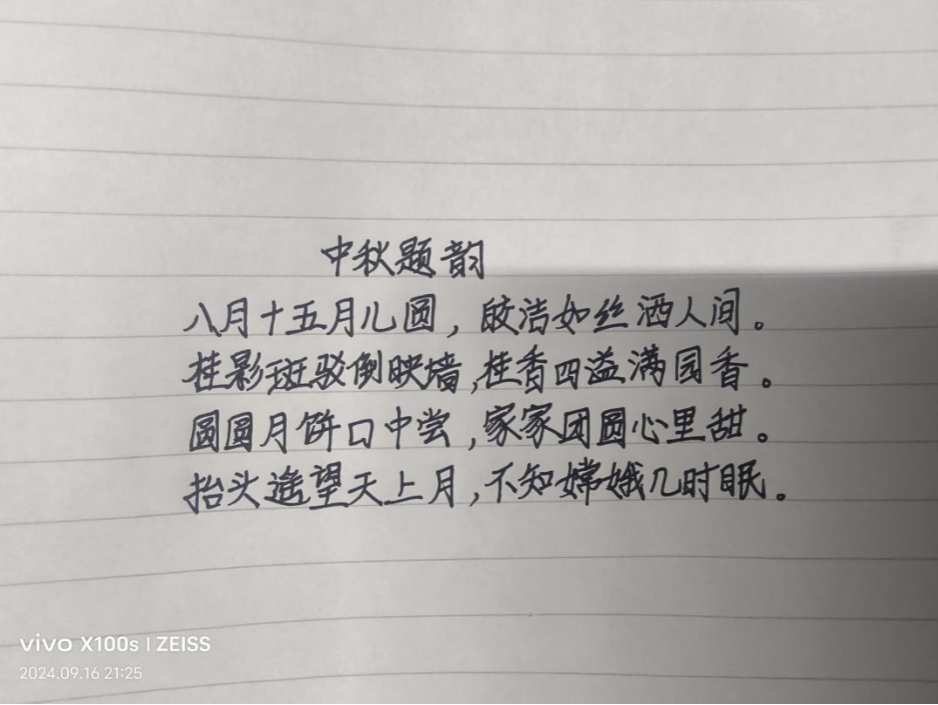 中秋题韵
八月十五月儿圆，皎洁如丝洒人间。
桂影斑驳倒映墙，桂香四溢满园香。
圆圆月饼口中尝，家家团圆心里甜。
抬头遥望天上月，不知嫦娥几时眠。
vivo X100s | ZEISS
2024.09.16 21:25